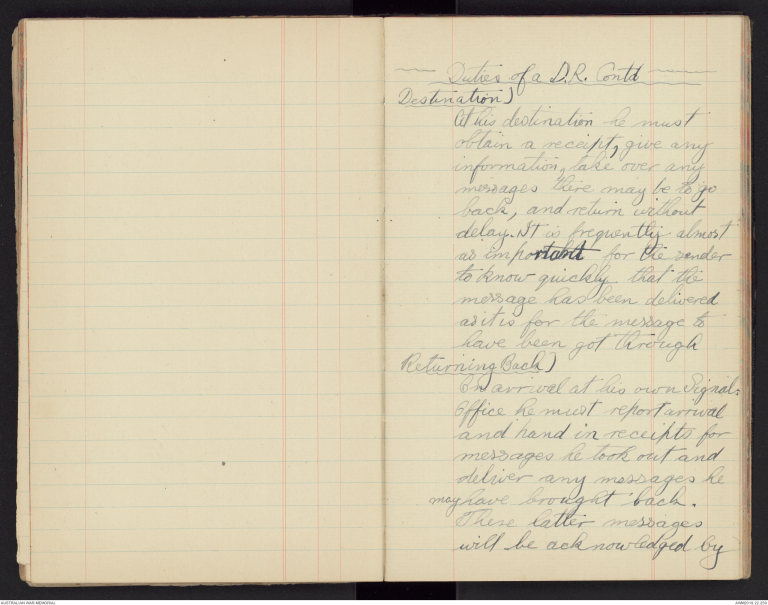 Duties of a D.R. Contd
Destination)
At his destination he must
obtain a receipt, give any
information, take over any
messages there may be to go
back, and return without
delay. It is frequently almost
as important for the sender
to know quickly that the
message has been delivered
as it is for the message to
have been got through
Returning Back)
On arrival at his own Signal-
Office he must report arrival
and hand in receipts for
messages he took out and
deliver any messages he
may have brought back.
These latter messages
will be acknowledged by
AUSTRALIAN WAR MEMORIAL